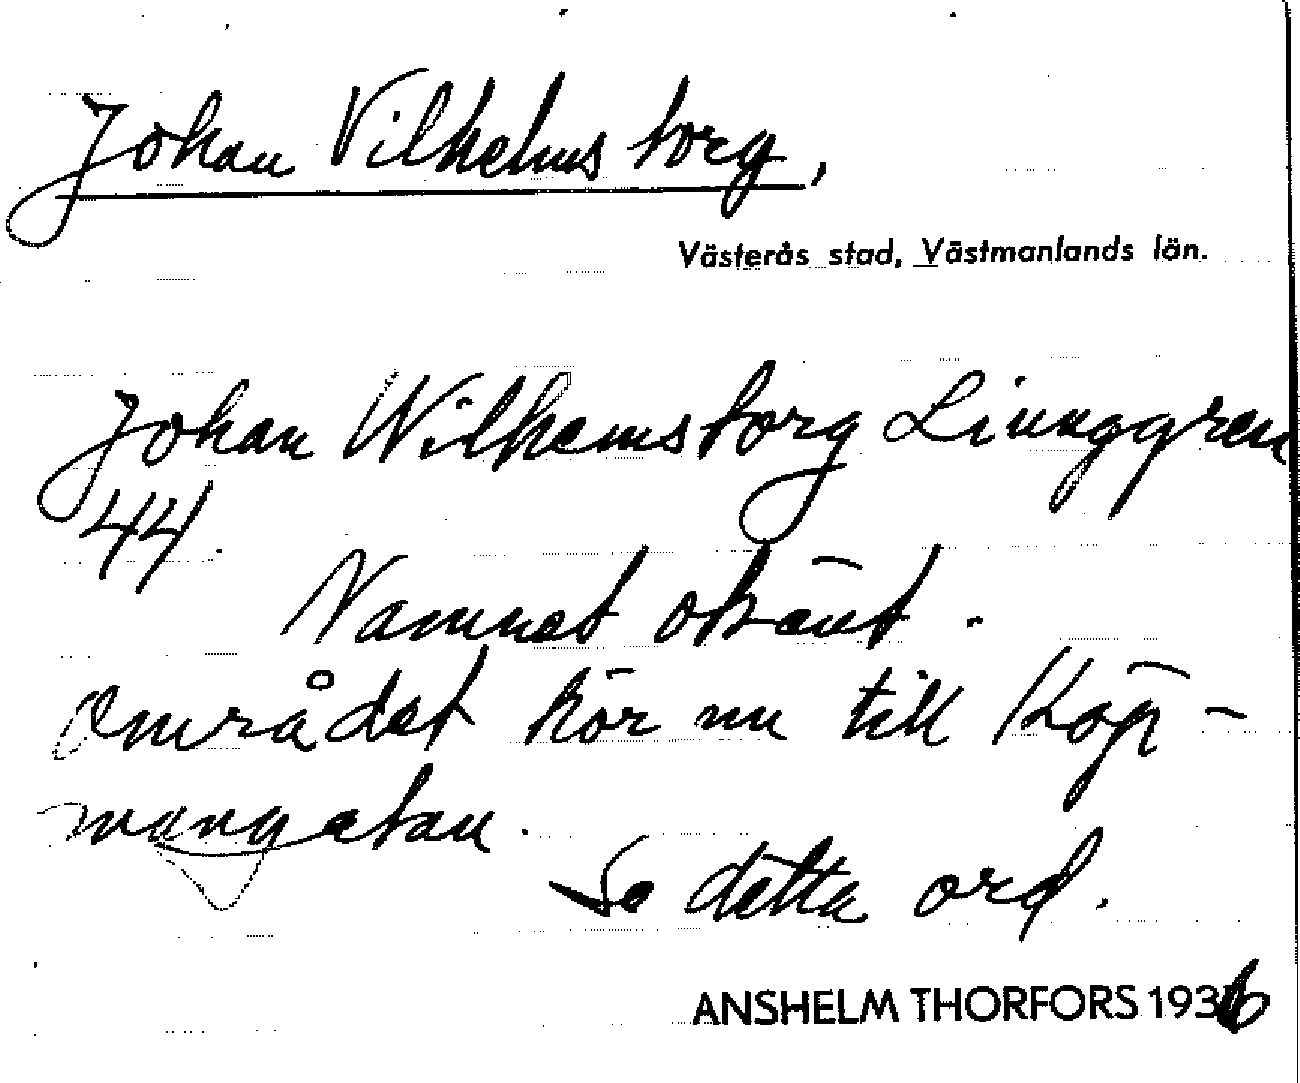 Johan Vilhelms torg,
Västerås stad, Västmanlands län.
Johan Wilhemstorg Liunggren
44.
Namnet okänt.
Området hör nu till Köp-
mangatan.
Se detta ord.
ANSHELM THORFORS 1936